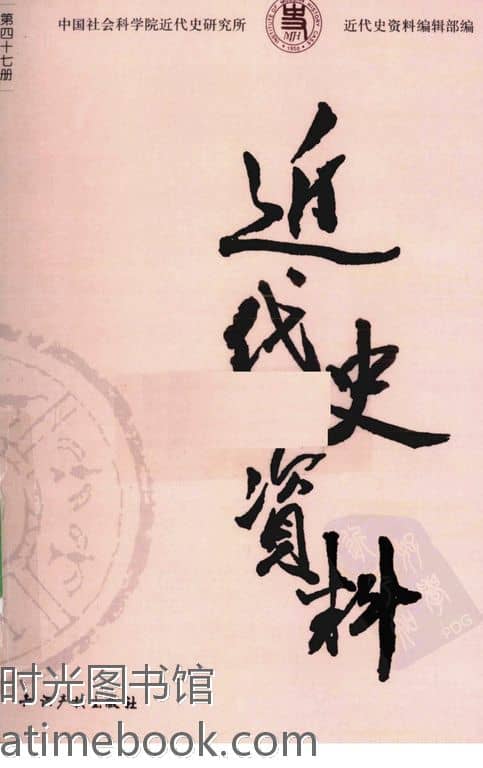 第四十七册
中国社会科学院近代史研究所
近代史资料编辑部编
近代史資料
PDG
时光图书馆
知识产权出版社
atimebook.com